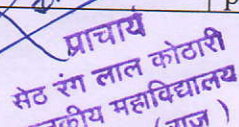 प्राचार्य
सेठ रंग लाल कोठारी
कीय महाविद्यालय
(राज